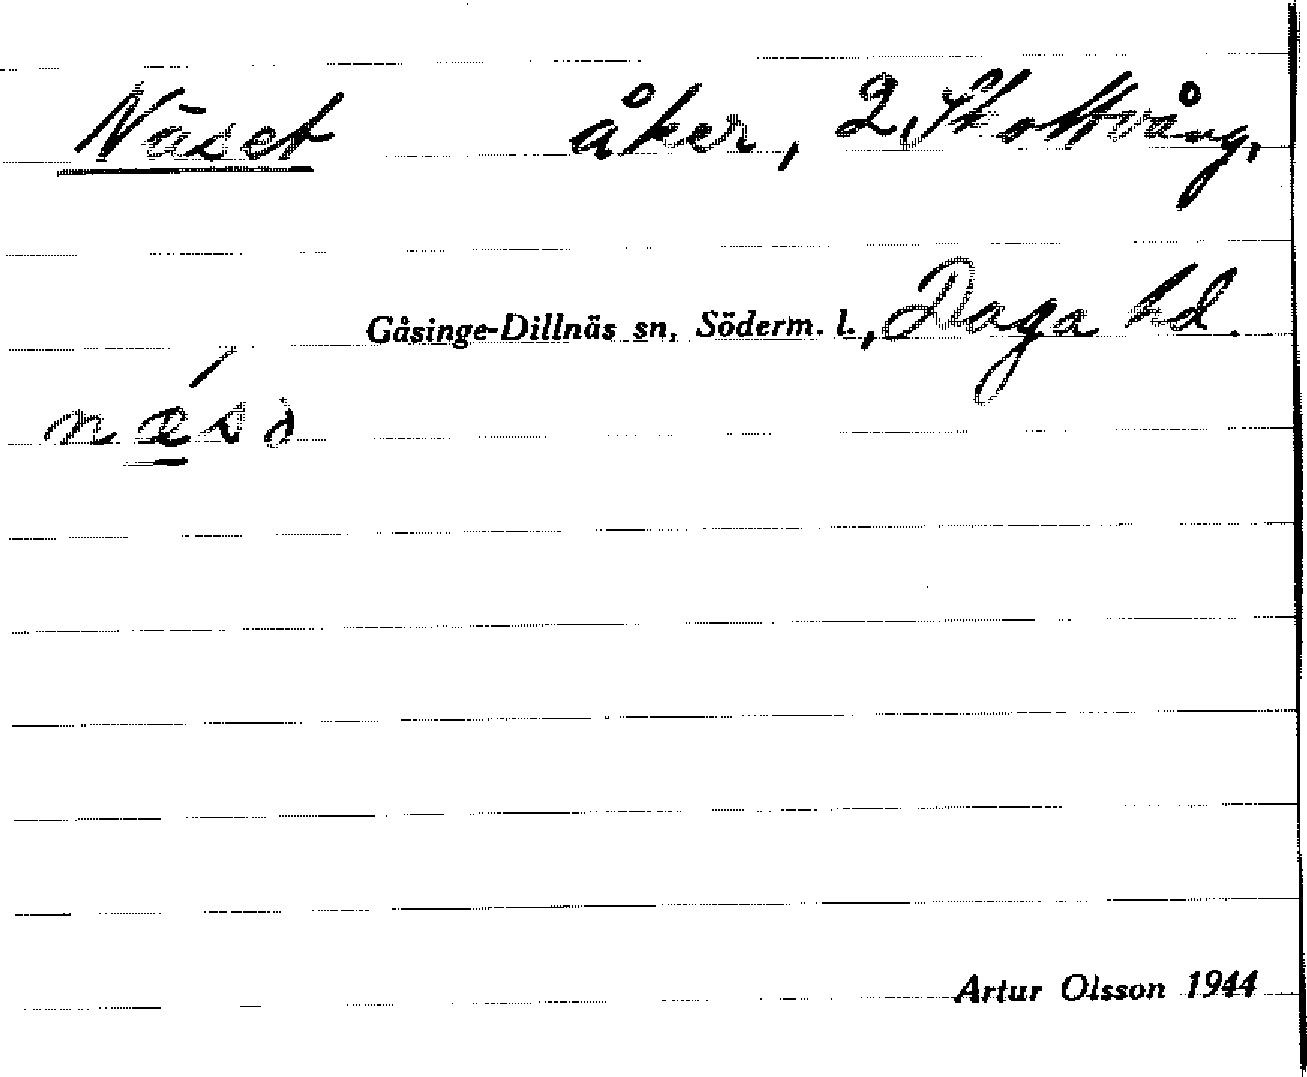 Näset åker, 2, Skottvång,
Gåsinge-Dillnäs sn, Söderm. l., Daga hd.
Artur Olsson 1944